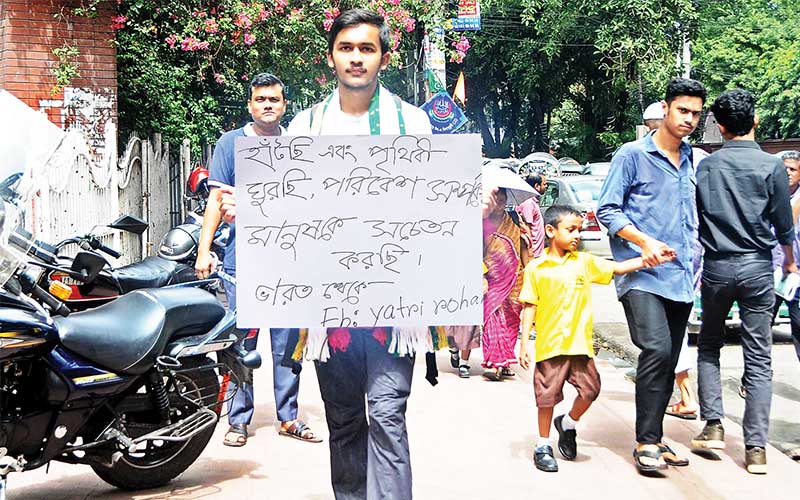 হাঁটছি এবং পৃথিবী
ঘুরছি, পরিবেশ সম্পর্কে
মানুষকে সচেতন
করছি।
ভারত থেকে
Fb: Yatri Roha